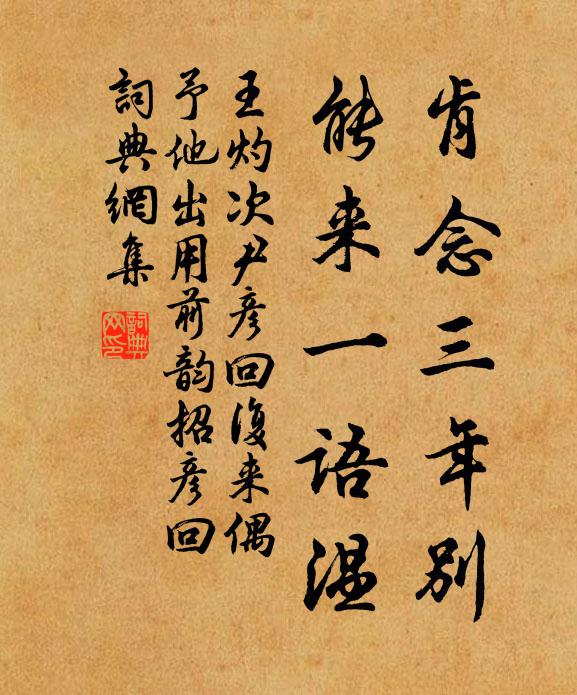 肯念三年别
能来一语温
王灼次尹彦回復来偶
予他出用前韵招彦回
詞典網集
詞典网印